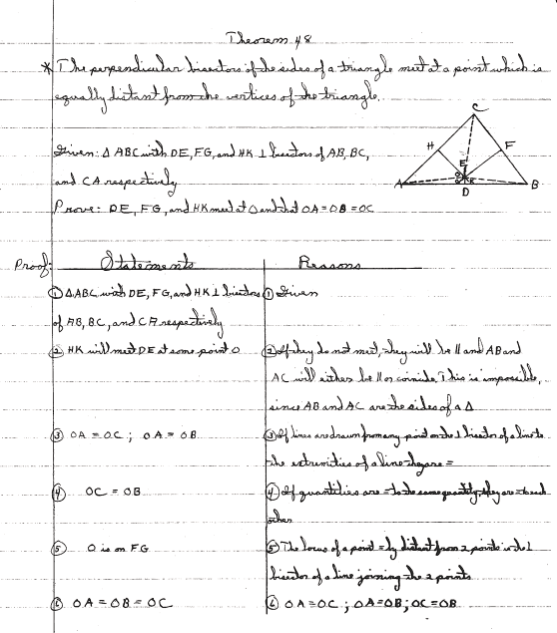 Theorem 48
* The perpendicular bisectors of the sides of a triangle meet at a point which is
equally distant from the vertices of the triangle.
C
H F
E
O K
A B
D
Given: Δ ABC with DE, FG, and HK ⊥ bisectors of AB, BC,
and CA respectively
Prove: DE, FG, and HK meet at O and that OA = OB = OC
Proof: Statements Reasons
① ΔABC with DE, FG, and HK ⊥ bisectors ① Given
of AB, BC, and CA respectively
② HK will meet DE at some point O ② If they do not meet, they will be || and AB and
AC will either be || or coincide. This is impossible,
since AB and AC are the sides of a Δ
③ OA = OC ; OA = OB ③ If lines are drawn from any point on the ⊥ bisector of a line to
the extremities of a line they are =
④ OC = OB ④ If quantities are = to the same quantity, they are = to each
other
⑤ O is on FG ⑤ The locus of a point =ly distant from 2 points is the ⊥
bisector of a line joining the 2 points
⑥ OA = OB = OC ⑥ OA = OC ; OA = OB ; OC = OB